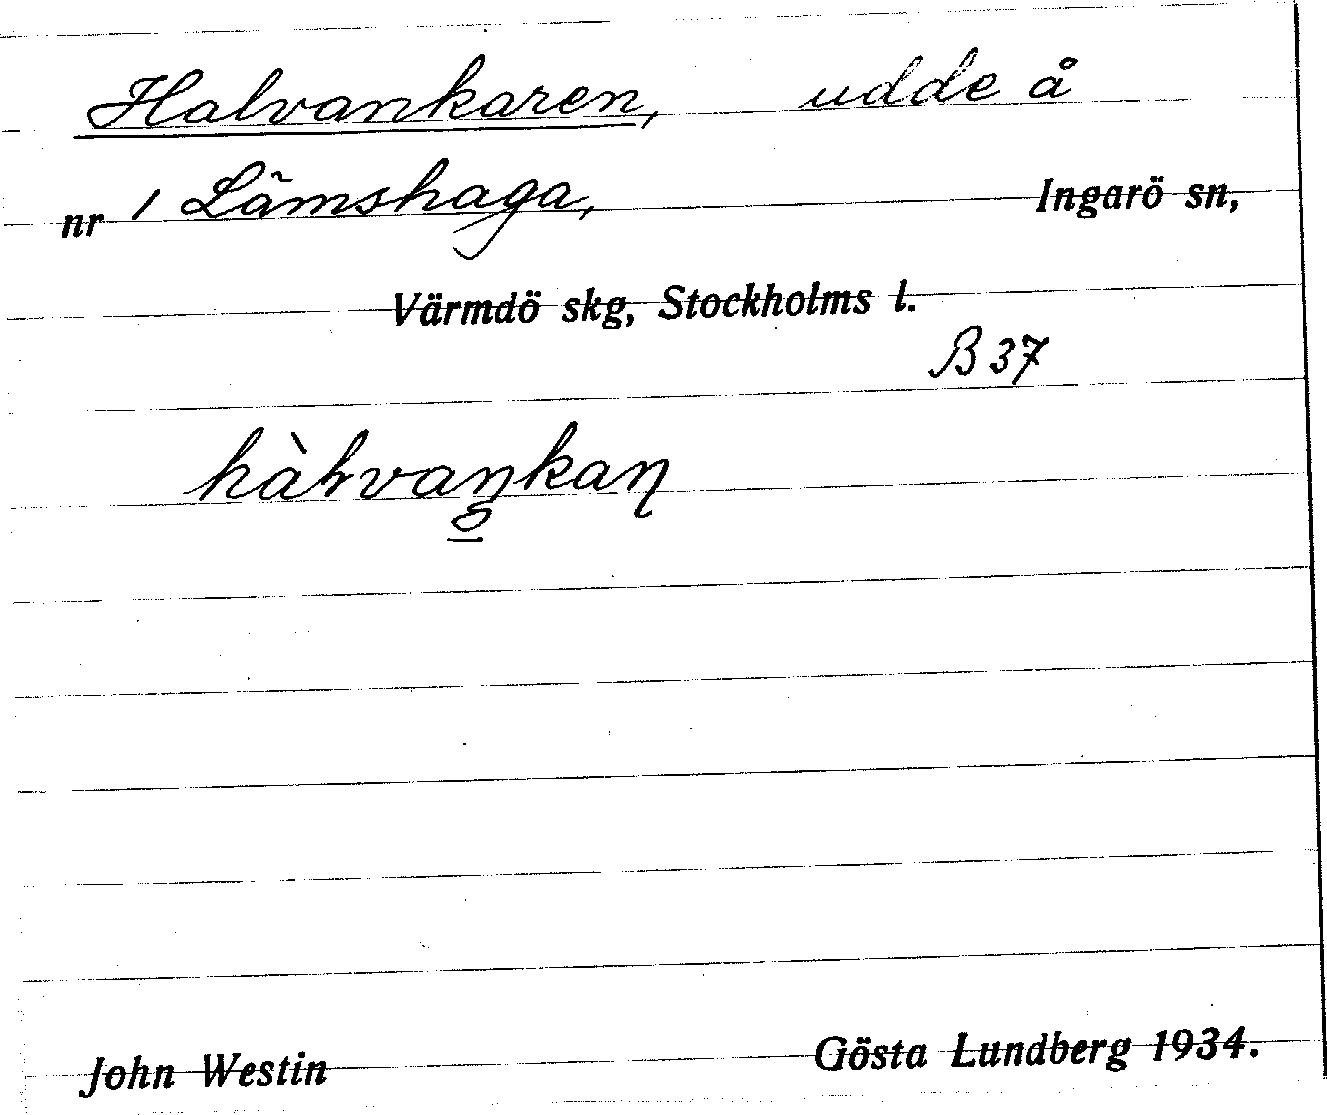 Halvankaren, udde å
nr 1 Lämshaga, Ingarö sn,
Värmdö skg, Stockholms l.
B 37
John Westin Gösta Lundberg 1934.